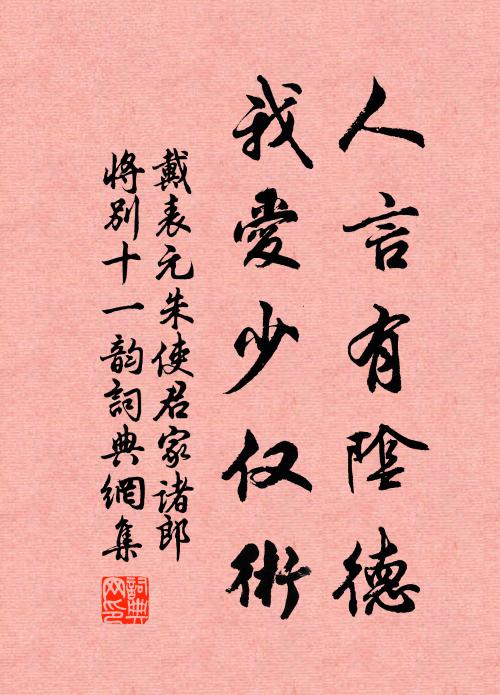 人言有陰德
我愛少仅術
戴表元朱使君家诸郎
将别十一韵詞典網集
詞典
网印